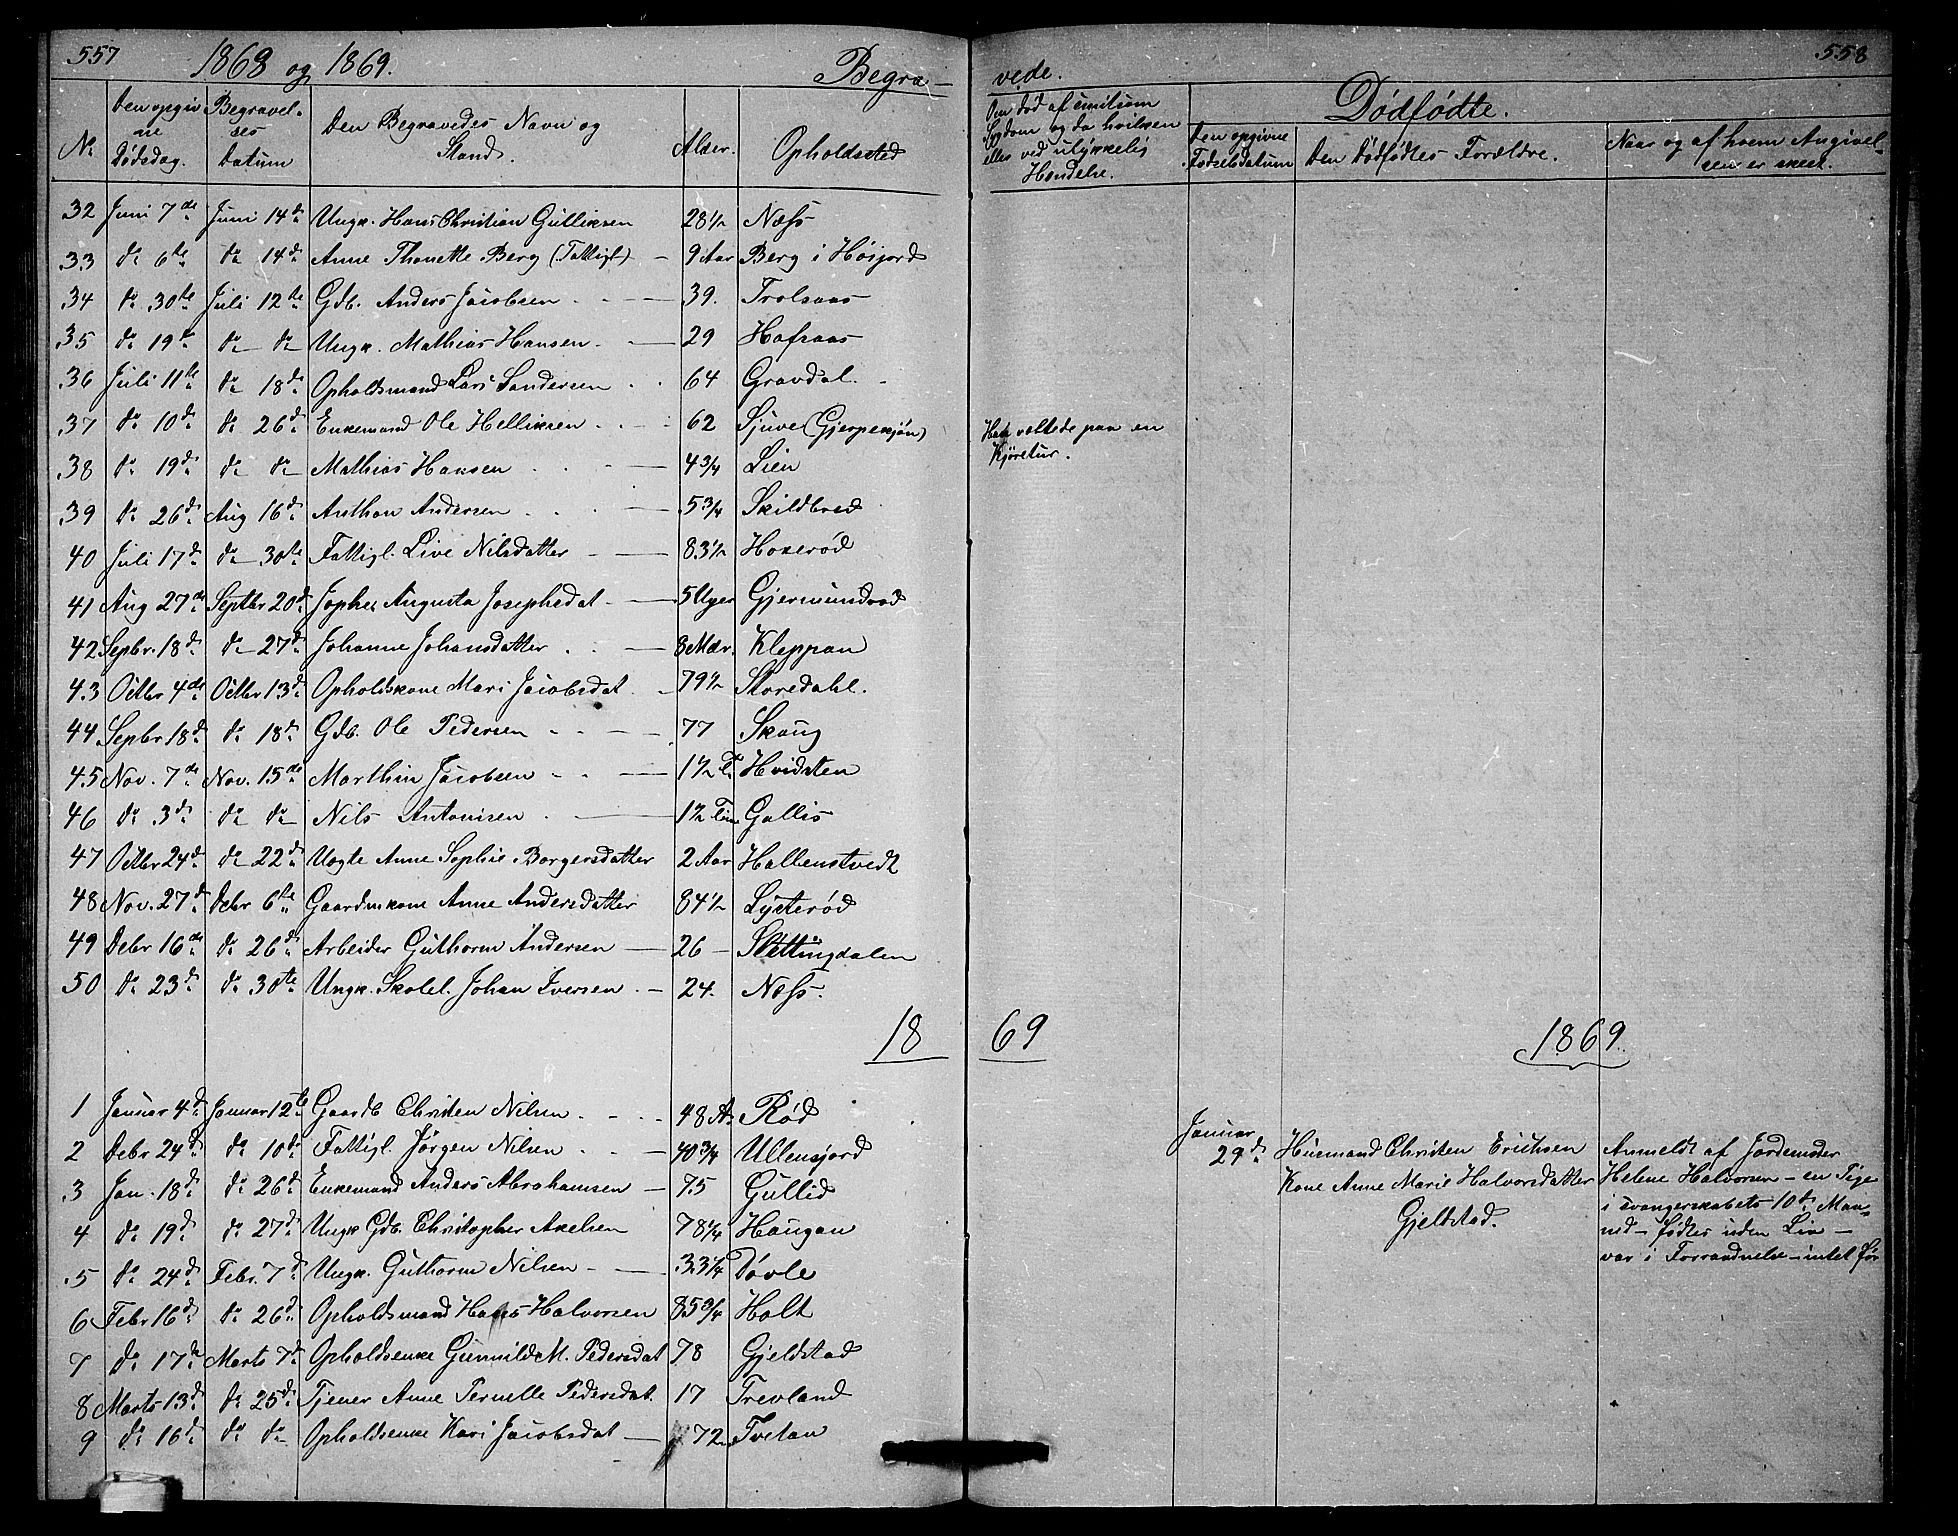 557 1868 og 1869. Begra-
Den opgivne Dødsdag. Begravelses Datum Den Begravedes Navn og Stand. Alder. Opholdssted
32 Juni 7de Juni 14de Ungk. Hans Christian Gulliksen 28 1/2 Næss
33 do 6te do 14de Anne Thonette Berg (Fattigl) - 9 Aar Berg i Høijord
34 do 30te Juli 12te Gdb. Anders Jacobsen 39. Trolsaas
35 do 19de do do Ungk. Mathias Hansen. 29 Hafsaas
36 Juli 11te do 18de Opholdsmand Lars Sandersen 64 Gravdal.
37 do 10de do 26de Enkemand Ole Helliksen 62 Sjuve (Gjerpensjøn)
38 do 19de do do Mathias Hansen 4 3/4 Lien
39 do 26de Aug 16de Anthon Andersen 5 3/4 Skildbred
40 Juli 17de do 30te Fattigl. Live Nilsdatter 83 1/2 Hoxerød
41 Aug 27de Septbr 20de Sophie Augusta Josephsdat 5 Uger Gjermundrød
42 Sepbr. 18de do 27de Johanne Johansdatter 8 Mdr. Kleppan
43 Octbr 4de Octbr 13de Opholdskone Mari Jacobsdat 79 1/2 Storedahl.
44 Sepbr 18de do 18de Gdb. Ole Pedersen 77 Skoug
45 Nov. 7de Nov. 15de Marthin Jacobsen 1 1/2 T. Hvidsten
46 do 3de do do Nils Antonisen 1 1/2 Tim Gallis
47 Octbr 24de do 22de Uægte Anne Sophie Borgersdatter 2 Aar Hallenstvedt
48 Nov. 27de Debr 6te Gaardmskone Anne Andersdatter 84 1/2 Lysterød
49 Debr 16de do 26de Arbeider Guthorm Andersen 26 - Slettingdalen
50 do 23de do 30te Ungk. Skolel. Johan Iversen 24. Næss.
18
1 Januar 4de Januar 12te Gaardb Christen Nilsen 48 A. Rød
2 Debr 24de do 10de Fattigl. Jørgen Nilsen 40 3/4 Ullensjord
3 Jan. 18de do 26de Enkemand Anders Abrahamsen 75 Gullid
4 do 19de do 27de Ungk Gdb. Christopher Axelsen 78 1/4 Haugan
5 do 24de Febr. 7de Ungk. Guthorm Nilsen 33 1/4 Døvle
6 Febr 16de do 26de Opholdsmand Hans Halvorsen 85 3/4 Holt
7 do 17de Marts 7de Opholdsenke Gunnild M. Pedersdat 78 Gjeldstad
8 Marts 13de do 25de Tjener Anne Pernille Pedersdat. 17 Trevland
9 do 16de do do Opholdsenke Kari Jacobsdat 72 Tvetan
vede. 558
Om død af smitsom
Sygdom og da hvilken
eller ved ulykkelig
Hændelse.
Dødfødte.
Den opgivne Fødselsdatum
Den Dødfødtes Forældre.
Naar og af hvem Angivel-
sen er skeet.
væltede paa en
Kjøretur.
69 1869.
Januar
29de
Huusmand Christen Erichsen
Kone Anne Marie Halvorsdatter
Gjeldstad.
Anmeldt af Jordemoder
Helene Halvorsen - en Pige
i svangerskabets 10de Maa-
ned - fødtes uden Liv -
var i Forraadnelse - intet før